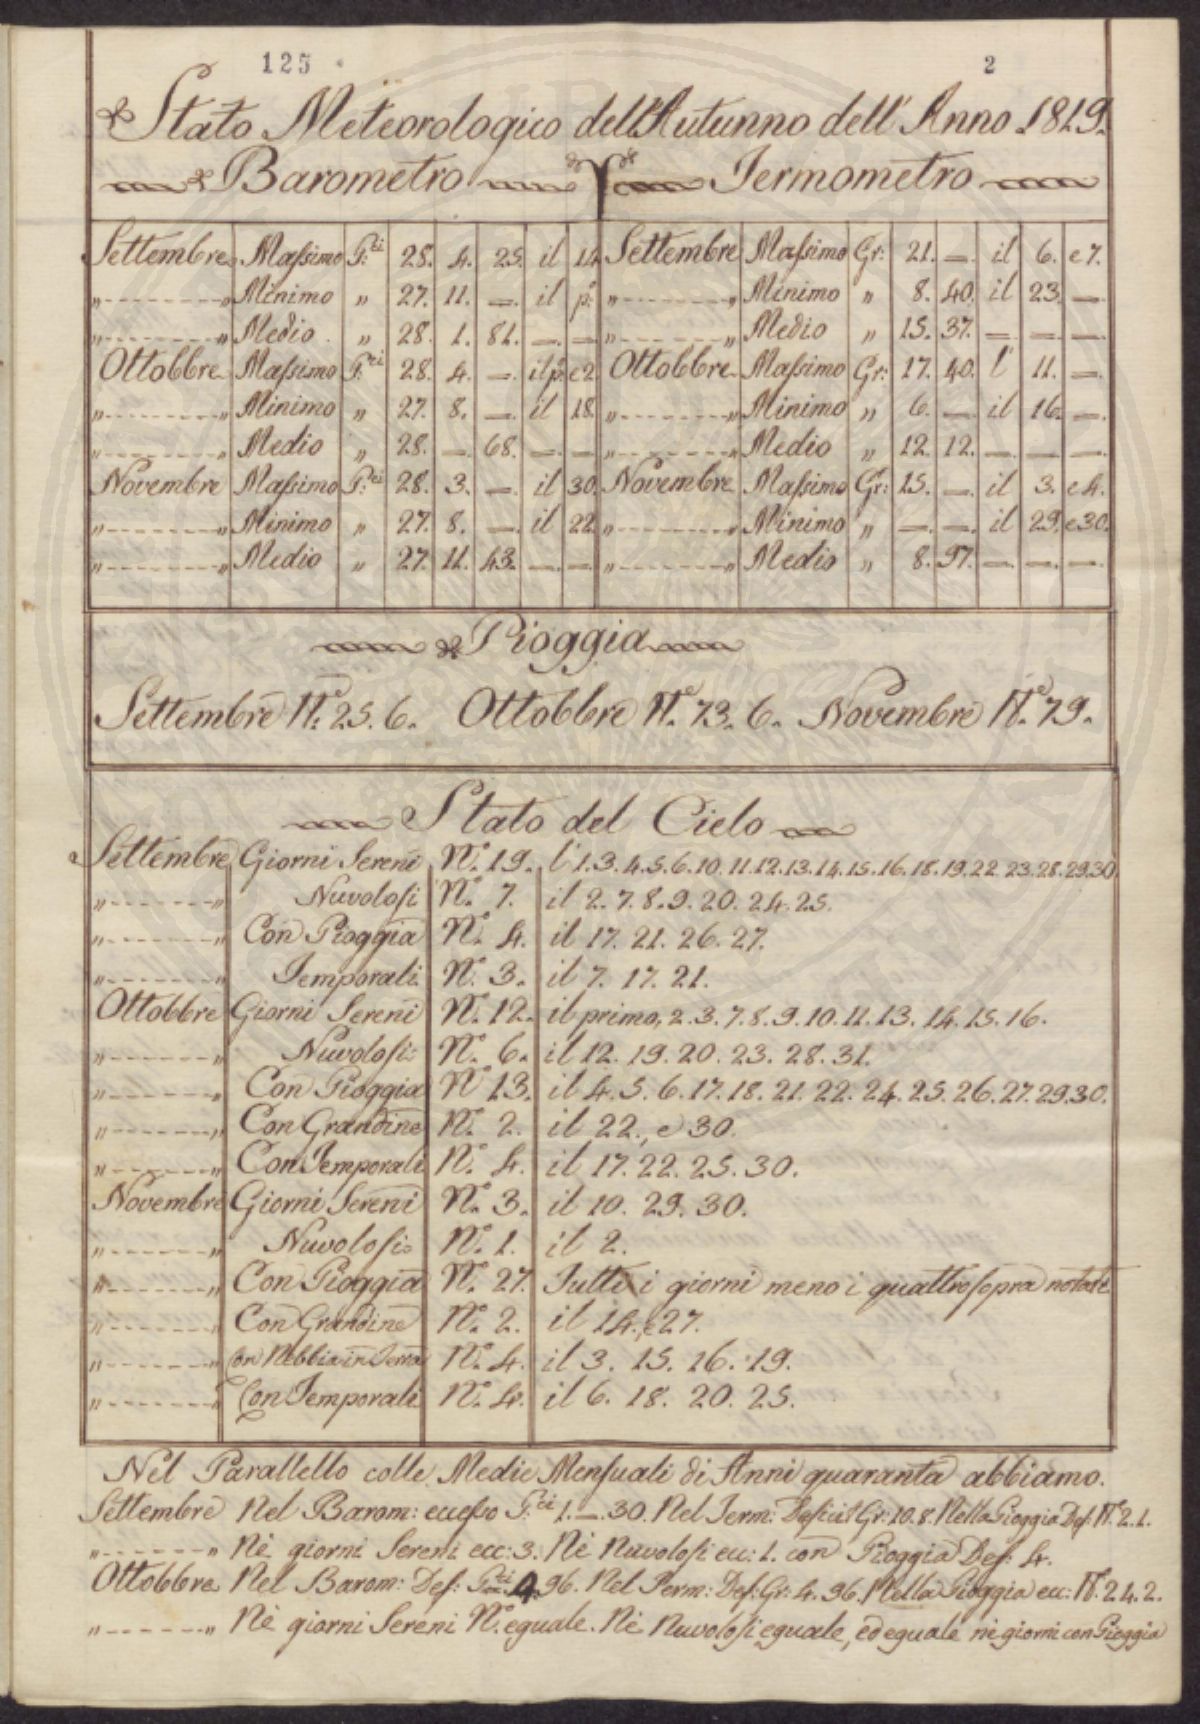 125 2
Stato Meteorologico dell'Autunno dell'Anno 1819.
Barometro Termometro
Settembre Massimo P:ci 28. 4. 25. il 14. Settembre Massimo Gr: 21. —. il 6. e 7.
„ - - - - - - - „ Minimo „ 27. 11. —. il p:o „ - - - - - - - „ Minimo „ 8. 40. il 23. —.
„ - - - - - - - „ Medio „ 28. 1. 81. —. —. „ - - - - - - - „ Medio „ 15. 37. —. —. —.
Ottobbre Massimo P:ci 28. 4. —. il p:o e 2. Ottobbre Massimo Gr: 17. 40. l' 11. —.
„ - - - - - - - „ Minimo „ 27. 8. —. il 18. „ - - - - - - - „ Minimo „ 6. —. il 16. —.
„ - - - - - - - „ Medio „ 28. —. 68. —. —. „ - - - - - - - „ Medio „ 12. 12. —. —. —.
Novembre Massimo P:ci 28. 3. —. il 30. Novembre Massimo Gr: 15. —. il 3. e 4.
„ - - - - - - - „ Minimo „ 27. 8. —. il 22. „ - - - - - - - „ Minimo „ —. —. il 29. e 30.
„ - - - - - - - „ Medio „ 27. 11. 43. —. —. „ - - - - - - - „ Medio „ 8. 97. —. —. —.
Pioggia
Settembre N.o 25. 6. Ottobbre N.o 73. 6. Novembre N.o 79.
Stato del Cielo
Settembre Giorni Sereni N.o 19. l' 1. 3. 4. 5. 6. 10. 11. 12. 13. 14. 15. 16. 18. 19. 22. 23. 28. 29. 30.
„ - - - - - - - „ Nuvolosi N.o 7. il 2. 7. 8. 9. 20. 24. 25.
„ - - - - - - - „ Con Pioggia N.o 4. il 17. 21. 26. 27.
„ - - - - - - - „ Temporali N.o 3. il 7. 17. 21.
Ottobbre Giorni Sereni N.o 12. il primo, 2. 3. 7. 8. 9. 10. 11. 13. 14. 15. 16.
„ - - - - - - - „ Nuvolosi: N.o 6. il 12. 19. 20. 23. 28. 31.
„ - - - - - - - „ Con Pioggia N.o 13. il 4. 5. 6. 17. 18. 21. 22. 24. 25. 26. 27. 29. 30.
„ - - - - - - - „ Con Grandine N.o 2. il 22., e 30.
„ - - - - - - - „ Con Temporali N.o 4. il 17. 22. 25. 30.
Novembre Giorni Sereni N.o 3. il 10. 29. 30.
„ - - - - - - - „ Nuvolosi: N.o 1. il 2.
„ - - - - - - - „ Con Pioggia N.o 27. Tutti i giorni meno i quattro sopra notati
„ - - - - - - - „ Con Grandine N.o 2. il 14. e 27.
„ - - - - - - - „ Con Nebbia in Terra N.o 4. il 3. 15. 16. 19.
„ - - - - - - - „ Con Temporali N.o 4. il 6. 18. 20. 25.
Nel Parallello colle Medie Mensuali di Anni quaranta abbiamo.
Settembre Nel Barom: eccesso P:ci 1. —. 30. Nel Term: Deficit Gr: 10. 8. Nella Pioggia Def: N.o 2. 1.
„ - - - - - - „ Nè giorni Sereni ecc: 3. Nè Nuvolosi ecc: 1. con Pioggia Def: 4.
Ottobbre Nel Barom: Def: 96. Nel Term: Def: Gr: 4. 96. Nella Pioggia ecc: N.o 24. 2.
„ - - - - - - „ Nè giorni Sereni N.o eguale. Nè Nuvolosi eguale, ed eguale nè giorni con Pioggia